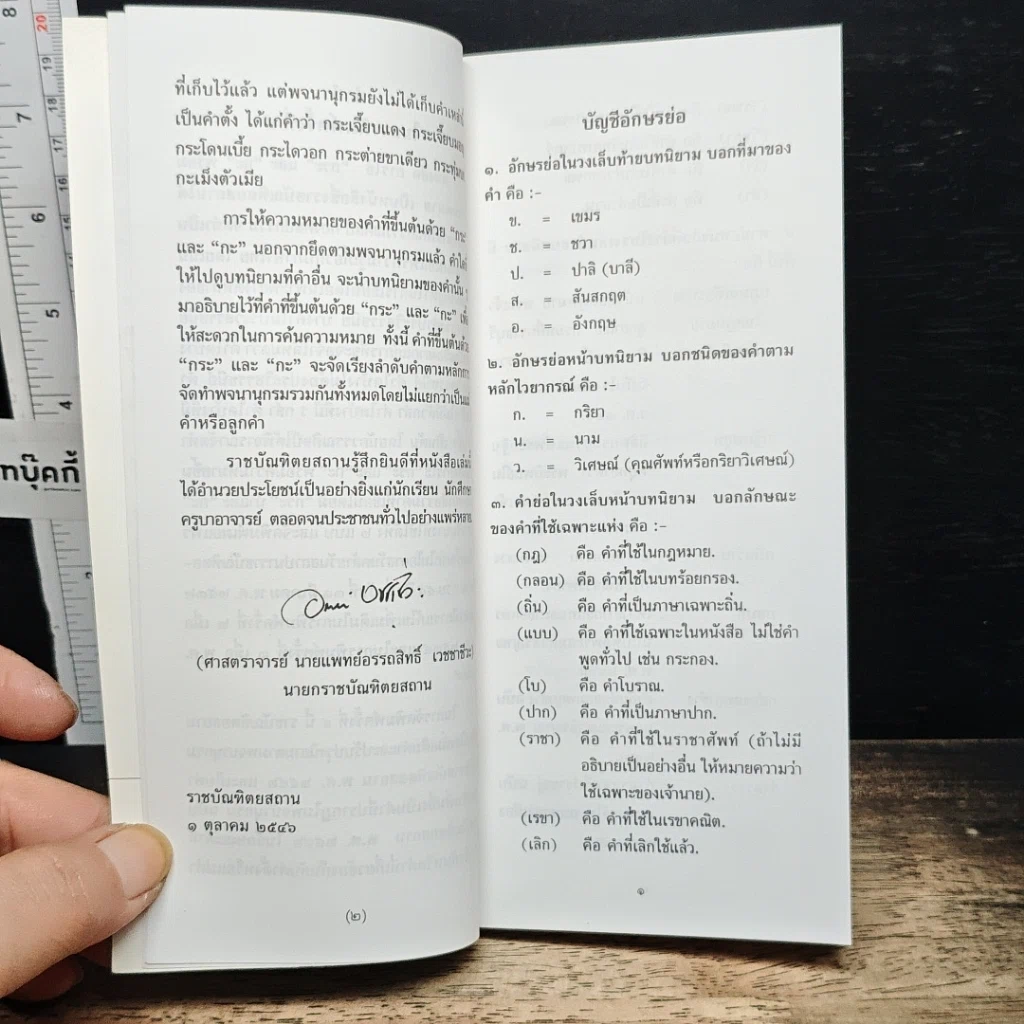 8
20
19
18
17
7
6
5
4
ทบุ๊คกี้
ที่เก็บไว้แล้ว แต่พจนานุกรมยังไม่ได้เก็บคำ
เป็นคำตั้ง ได้แก่คำว่า กระเจี๊ยบแดง
กระโดนเบี้ย กระไดวอก กระต่ายขาเดียว
กะเม็งตัวเมีย
การให้ความหมายของคำที่ขึ้นต้นด้วย “กระ”
และ “กะ” นอกจากยึดตามพจนานุกรมแล้ว
ให้ไปดูบทนิยามที่คำอื่น จะนำบทนิยามของคำนั้น ๆ
มาอธิบายไว้ที่คำที่ขึ้นต้นด้วย “กระ” และ “กะ”
ให้สะดวกในการค้นความหมาย ทั้งนี้ คำที่ขึ้นต้นด้วย
“กระ” และ “กะ” จะจัดเรียงลำดับคำตามหลัก
จัดทำพจนานุกรมรวมกันทั้งหมดโดยไม่แยกว่าเป็น
คำหรือลูกคำ
ราชบัณฑิตยสถานรู้สึกยินดีที่หนังสือเล่มนี้
ได้อำนวยประโยชน์เป็นอย่างยิ่งแก่นักเรียน นักศึกษา
ครูบาอาจารย์ ตลอดจนประชาชนทั่วไปอย่างแพร่หลาย
(ศาสตราจารย์ นายแพทย์อรรถสิทธิ์ เวชชาชีวะ)
นายกราชบัณฑิตยสถาน
ราชบัณฑิตยสถาน
๑ ตุลาคม ๒๕๔๖
(๒)
บัญชีอักษรย่อ
๑. อักษรย่อในวงเล็บท้ายบทนิยาม บอกที่มาของ
คำ คือ :-
ข. = เขมร
ช. = ชวา
ป. = ปาลิ (บาลี)
ส. = สันสกฤต
อ. = อังกฤษ
๒. อักษรย่อหน้าบทนิยาม บอกชนิดของคำตาม
หลักไวยากรณ์ คือ :-
ก. = กริยา
น. = นาม
ว. = วิเศษณ์ (คุณศัพท์หรือกริยาวิเศษณ์)
๓. คำย่อในวงเล็บหน้าบทนิยาม บอกลักษณะ
ของคำที่ใช้เฉพาะแห่ง คือ :-
(กฎ) คือ คำที่ใช้ในกฎหมาย.
(กลอน) คือ คำที่ใช้ในบทร้อยกรอง.
(ถิ่น) คือ คำที่เป็นภาษาเฉพาะถิ่น.
(แบบ) คือ คำที่ใช้เฉพาะในหนังสือ ไม่ใช่คำ
พูดทั่วไป เช่น กระกอง.
(โบ) คือ คำโบราณ.
(ปาก) คือ คำที่เป็นภาษาปาก.
(ราชา) คือ คำที่ใช้ในราชาศัพท์ (ถ้าไม่มี
อธิบายเป็นอย่างอื่น ให้หมายความว่า
ใช้เฉพาะของเจ้านาย).
(เรขา) คือ คำที่ใช้ในเรขาคณิต.
(เลิก) คือ คำที่เลิกใช้แล้ว.
๑